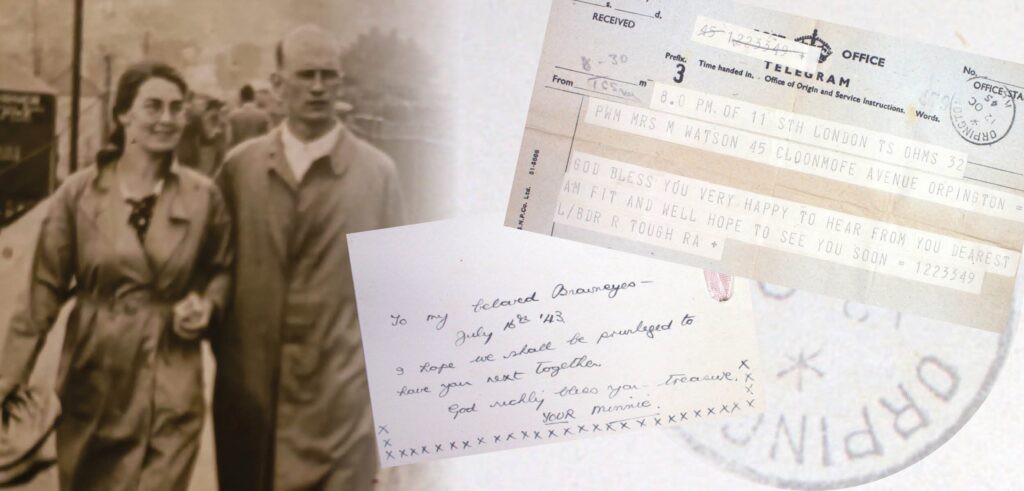 s. d.
RECEIVED
From
8-30
m
45 1223349
OFFICE
TELEGRAM
Prefix.
3
Time handed in.
Office of Origin and Service Instructions.
Words.
No.
OFFICE STA
12 OC
45
ORPINGTON
8.0 PM. OF 11 STH LONDON TS OHMS 32
PWM MRS M WATSON 45 CLOONMOFE AVENUE ORPINGTON =
GOD BLESS YOU VERY HAPPY TO HEAR FROM YOU DEAREST
AM FIT AND WELL HOPE TO SEE YOU SOON = 1223349
L/BDR R TOUGH RA +
51-8666
N.P.Co. Ltd.
To my beloved Browneyes—
July '43
I hope we shall be privileged to
have you next together.
God richly bless you treasure.
YOUR Minnie.
x
x
x
x
x
x x x x x x x x x x x x x x x x x x x x x x x x
ORPING